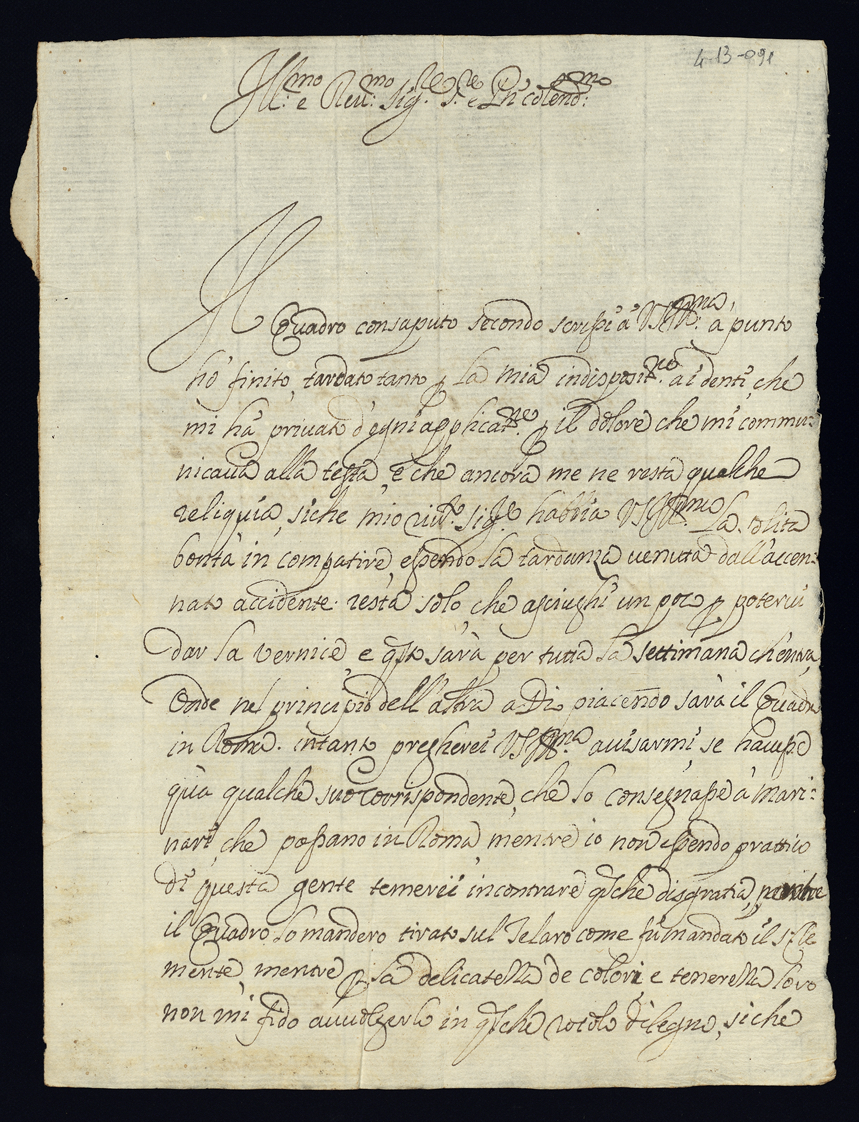 4-13-091
Ill:mo e Reu:mo Sig:re S:re e Pn̄ colend:mo
Il Quadro consaputo secondo scrissi à VSIll:ma à punto
hò finito, tardato tanto p la mia indisposit:ne ai denti, che
mi hà privato d'ogni applicat:ne p il dolore che mi commu:
nicaua alla testa, e che ancora me ne resta qualche
reliquia, siche mio Sig:re habbia VSIll:ma la solita
bontà in compatire essendo la tardanza uenuta dall'accen:
nato accidente: resta solo che asciughi un poco p poterui
dar la vernice, e sarà per tutta la settimana ch'entra,
Onde nel principio dell'altra a Dio piacendo sarà il Quadro
in Roma. intanto pregherei VSIll:ma auisarmi se hauesse
quà qualche suo Corrispondente, che lo consegnasse à Mari:
nari che passano in Roma mentre io non essendo prattico
di questa gente temerei incontrare qlche disgratia,
il Quadro lo manderò tirato sul Telaro come fù mandato il
mente mentre p la delicatezza de colori, e tenerezza loro
non mi fido auuolgerlo in qlche rotolo di legno, siche